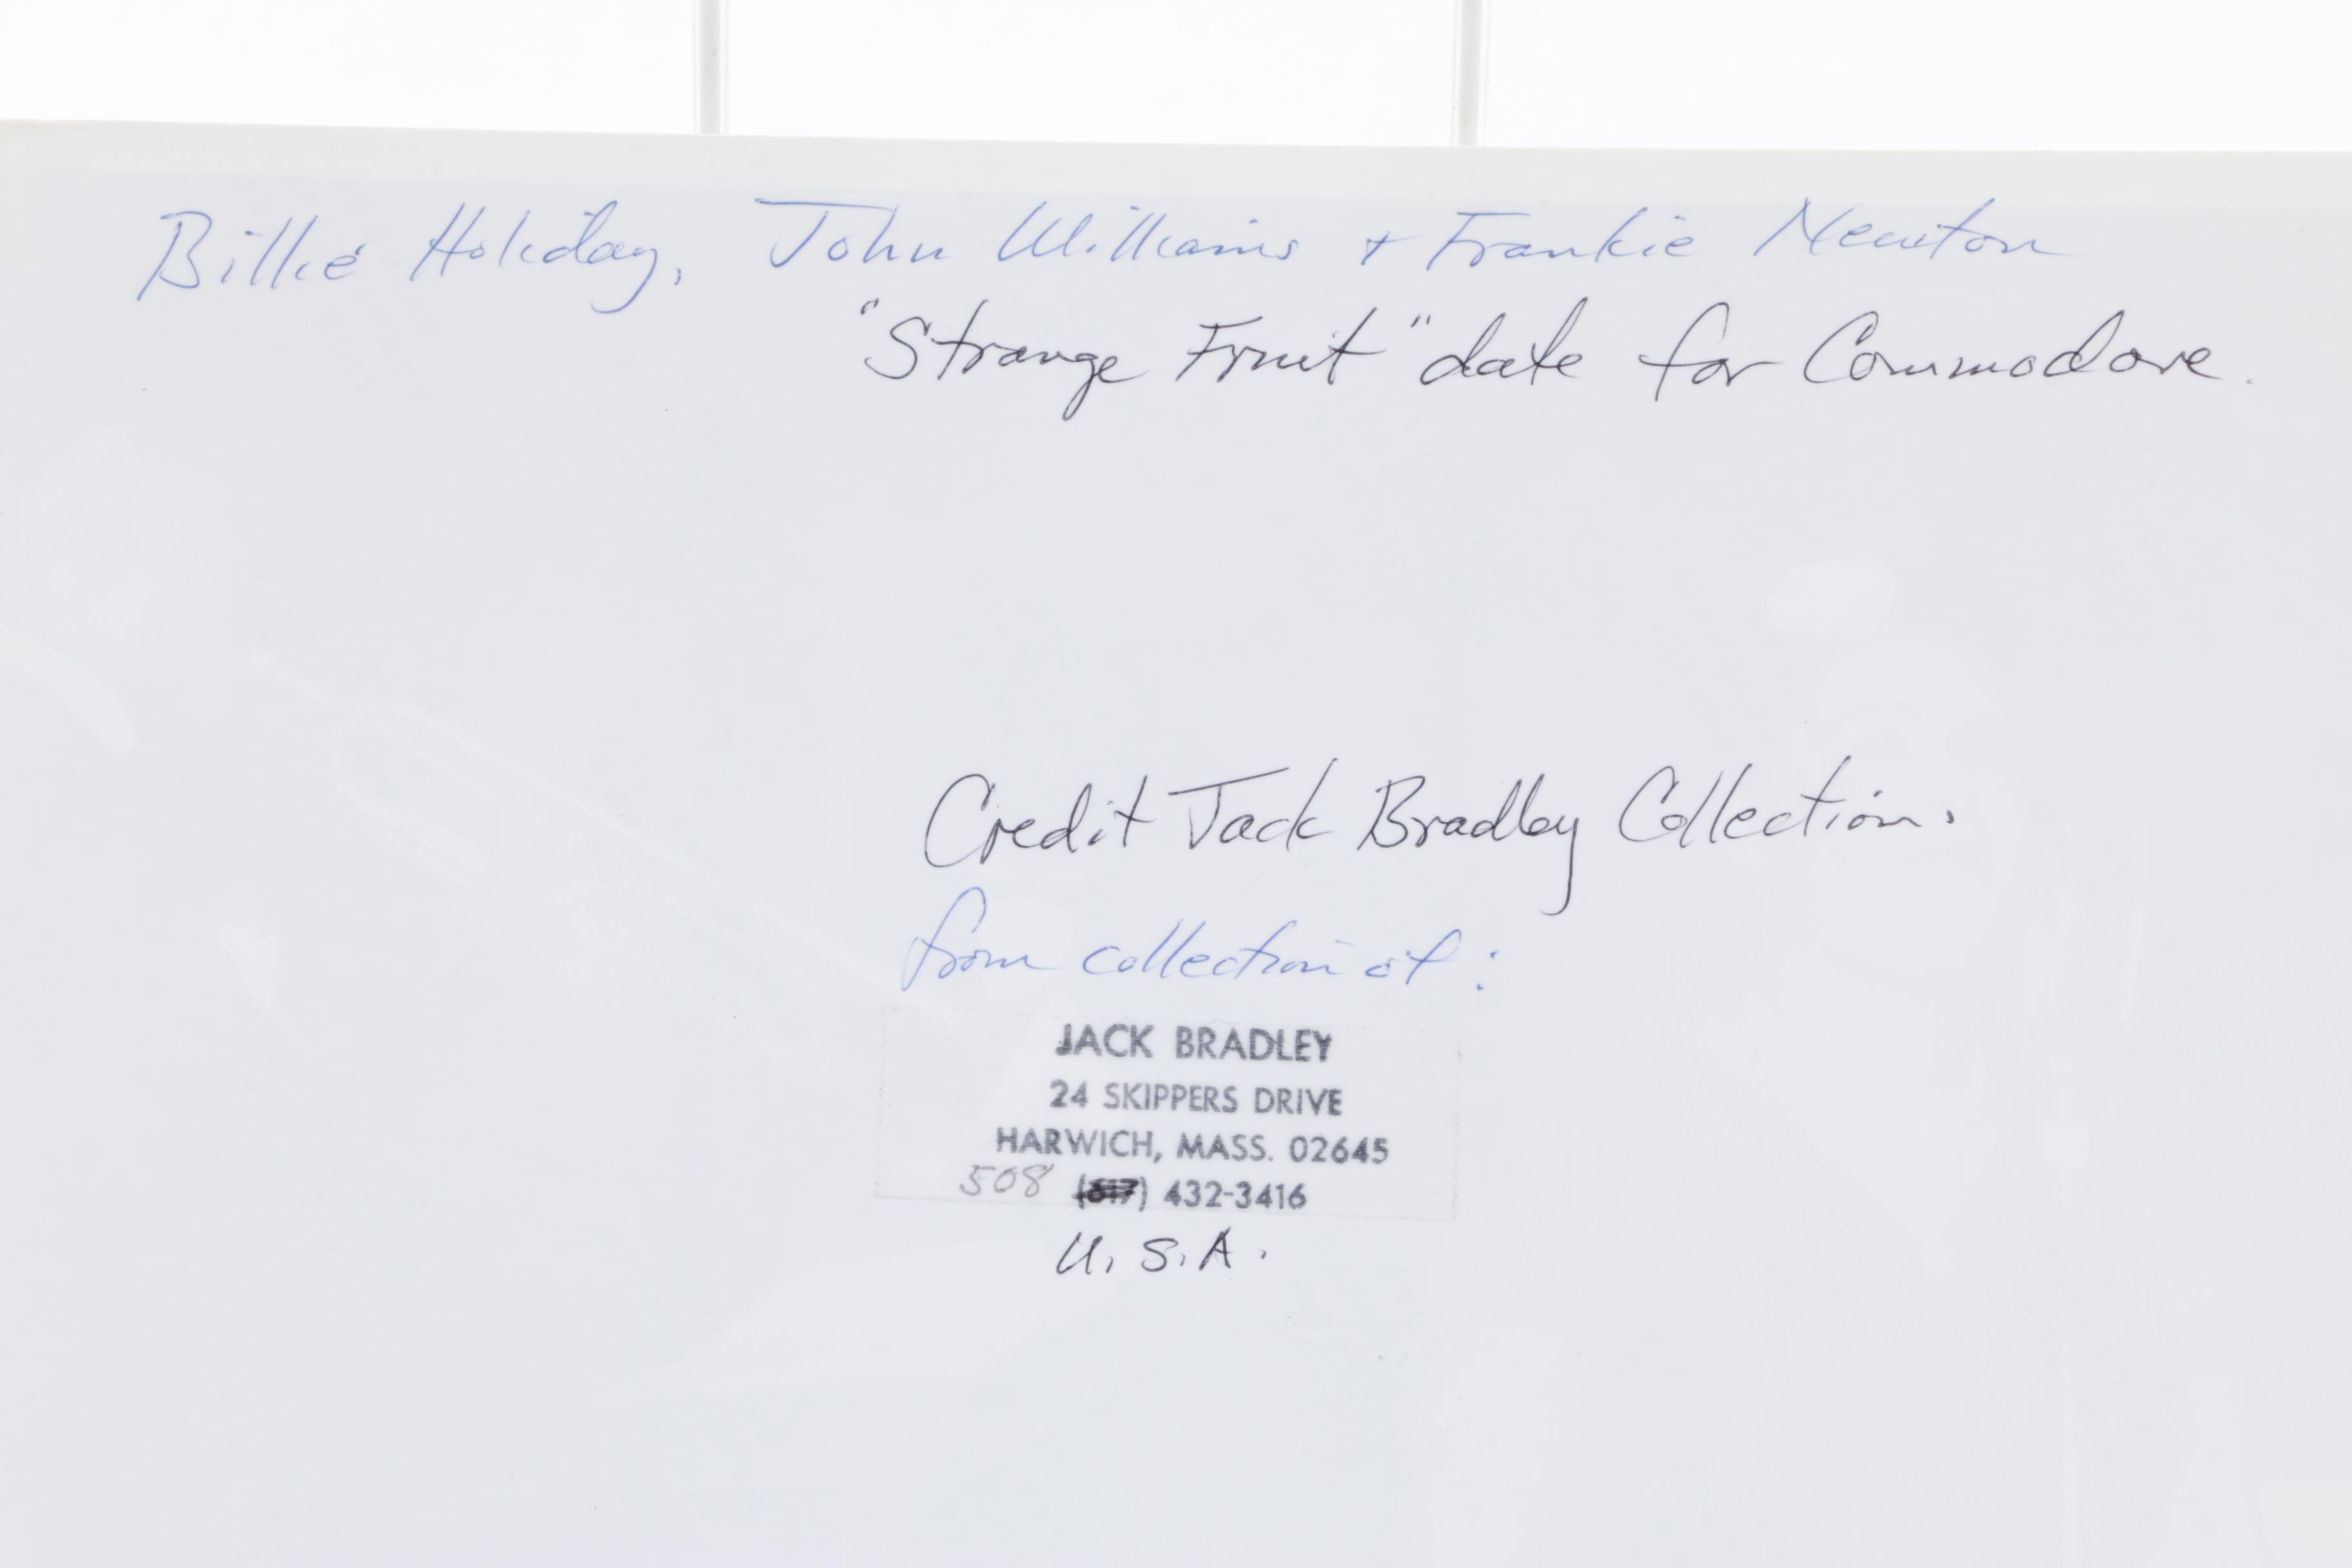 Billie Holiday, John Williams + Frankie Newton
"Strange Fruit" date for Commodore.
Credit Jack Bradley Collection.
from collection of:
JACK BRADLEY
24 SKIPPERS DRIVE
HARWICH, MASS. 02645
508 (617) 432-3416
U.S.A.